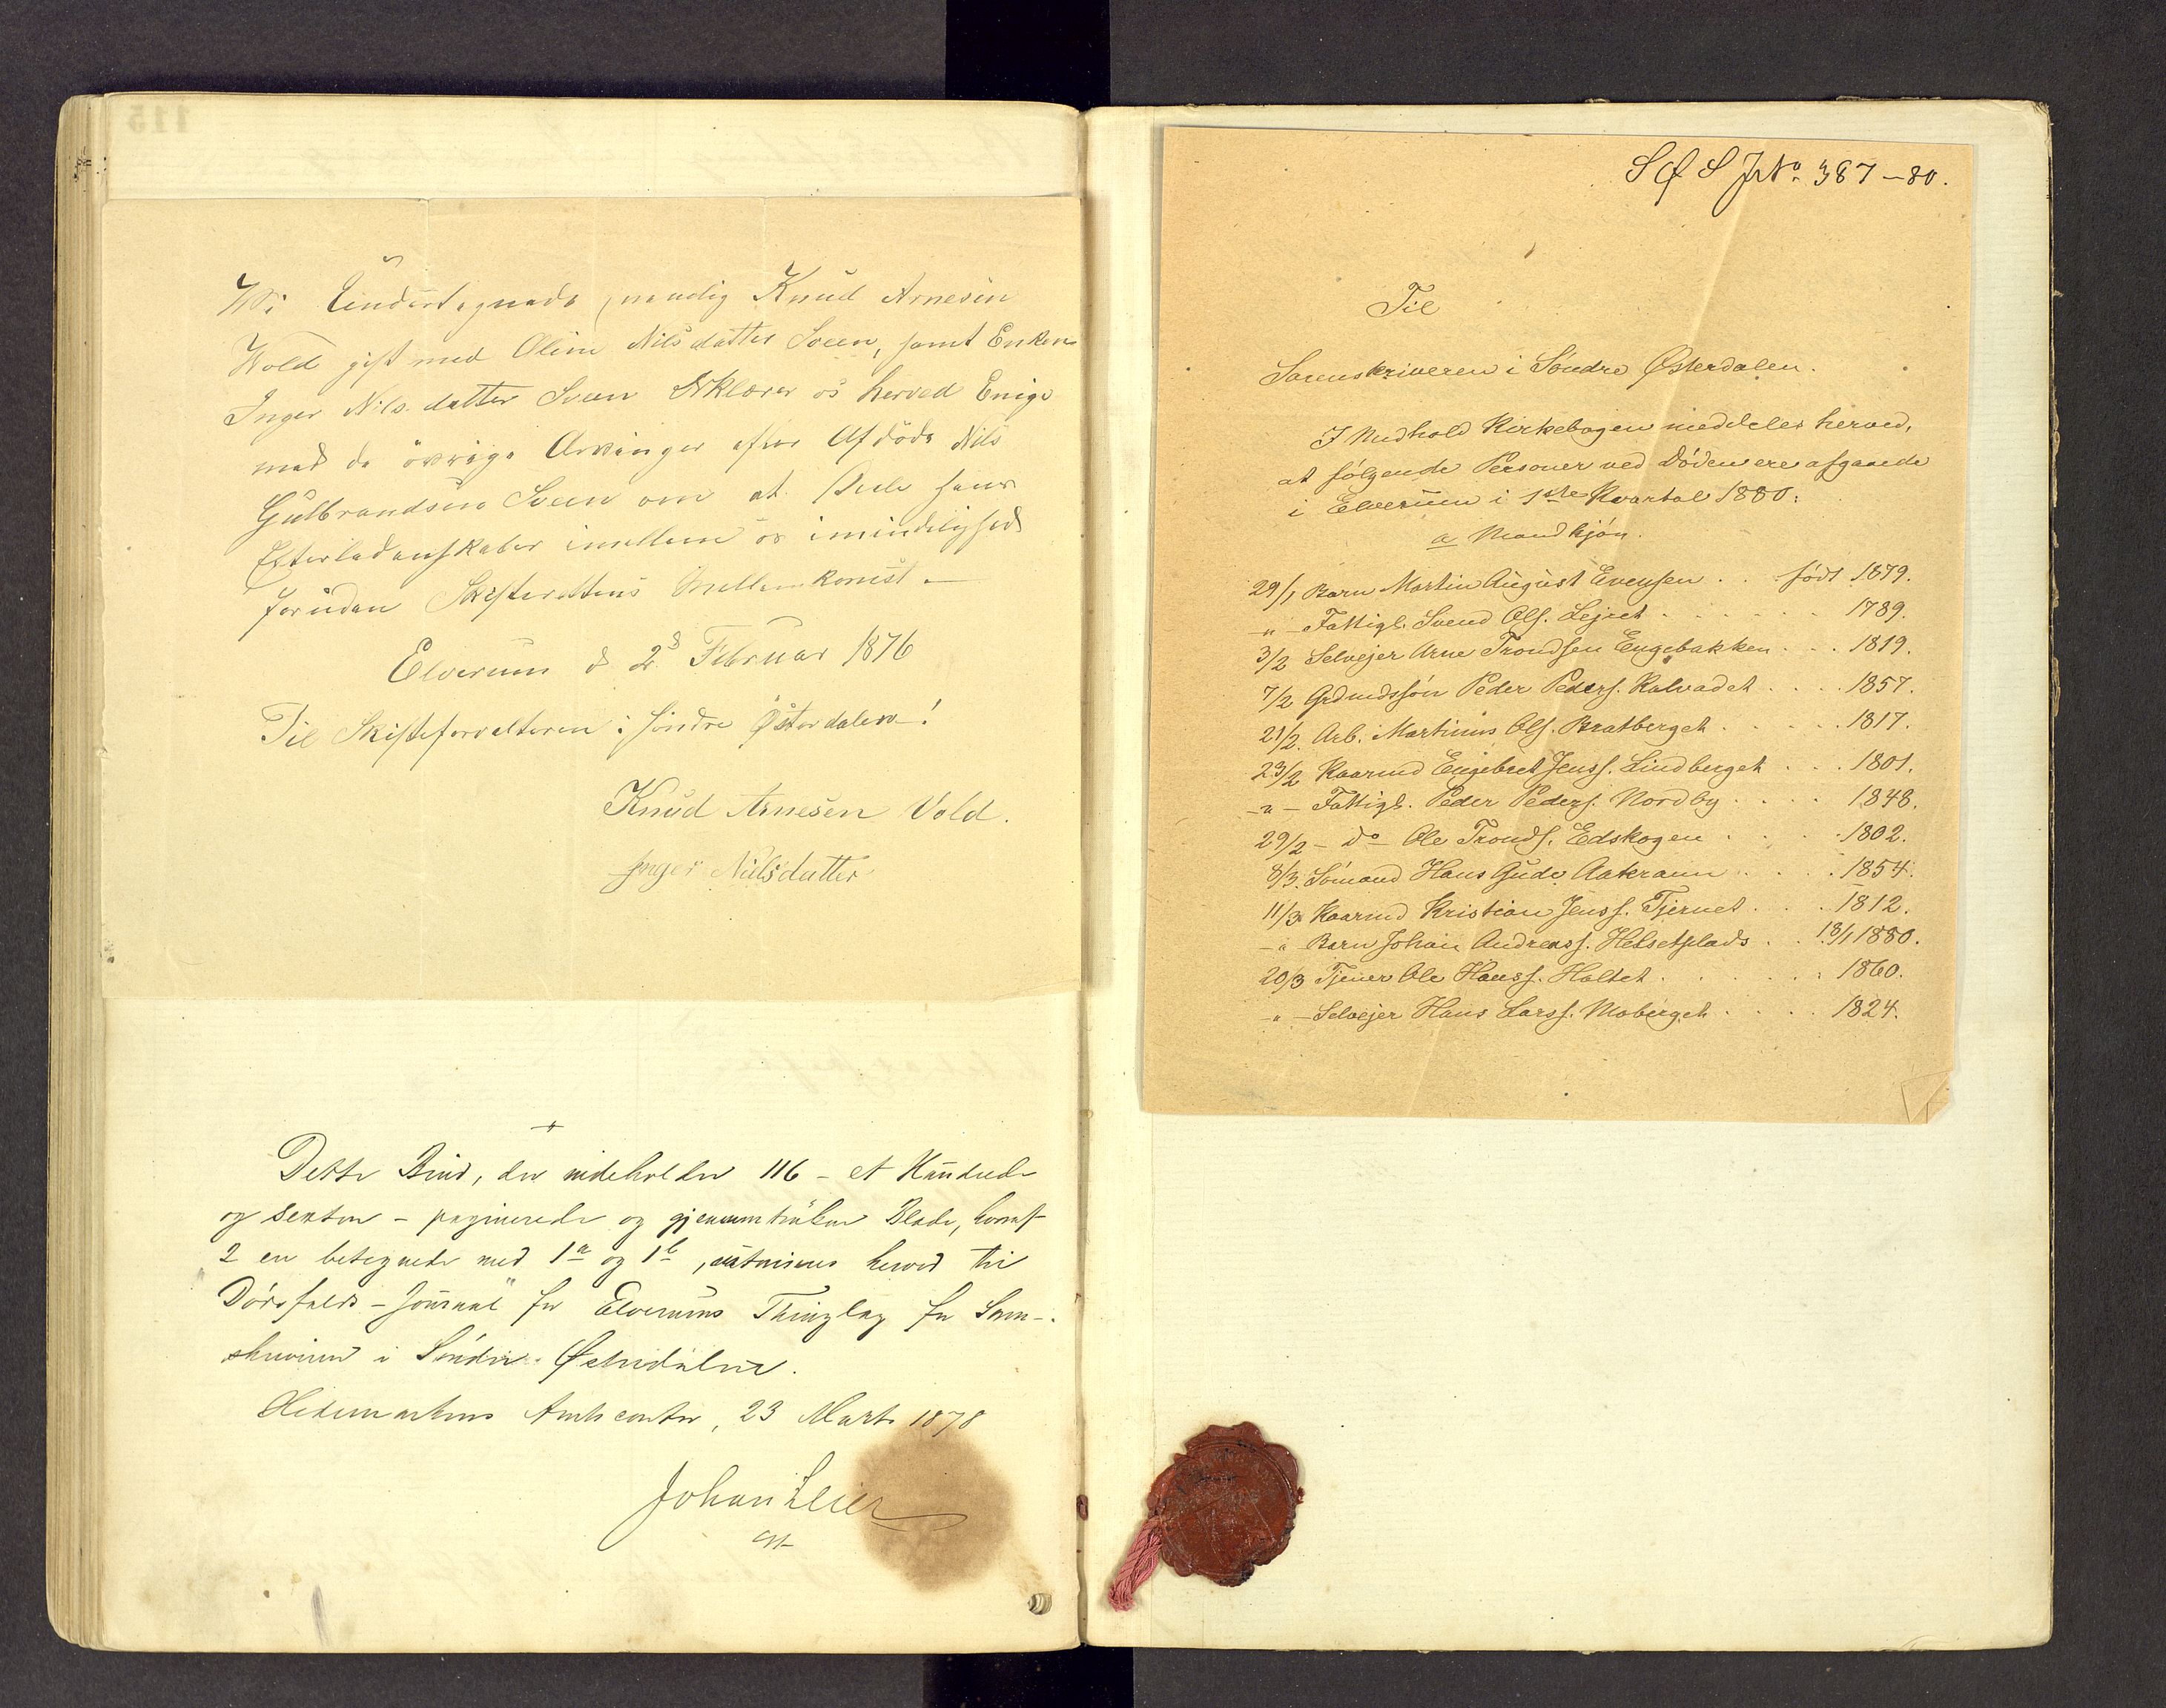 Wi Undertegnede nemlig Knud Arnesen
Wold gift med Oline Nilsdatter Sveen, samt Enken
Inger Nilsdatter Sveen Erklærer os herved Enige
med de övrige Arvinger efter Afdöde Nils
Gulbrandsen Sveen om at Dele hans
Efterladenskaber imellem os i mindelighed
foruden Skifterettens Mellemkomst. —
Elverum d 2 Februar 1876
Til Skifteforvalteren i söndre Österdalen!
Knud Arnesen Vold.
Inger Nilsdatter
Dette Bind, der indeholder 116 - et Hundrede
og sexten - paginerede og gjennemtrukne Blade, hvoraf
2 ere betegnede med 1a og 1b, autoriseres herved til
"Dødsfalds-Journal" for Elverums Thinglag for Soren-
skriveren i Søndre Østerdalen.
Hedemarkens Amtscontor, 23 Marts 1878
Johan
cst
S Ø S J No. 387-80.
Til
Sorenskriveren i Søndre Østerdalen.
I Medhold Kirkebogen meddeles herved,
at følgende Personer ved Døden ere afgaaede
i Elverum i 1ste Kvartal 1880:
a Mandkjøn.
29/1 Barn Martin August Evensen . . født 1879.
-"- Fattigl. Svend Ols. Lejret . . . . . . 1789.
3/2 Selvejer Arne Trondsen Engebakken . . . 1819.
7/2 Grdmdssøn Peder Peders. Kalvadet . . . . 1857.
21/2. Arb. Martinus Ols. Bratberget . . . . . 1817.
23/2 Kaarmd Engebret Jenss. Lindberget . . . 1801.
-"- Fattigl. Peder Peders. Nordby . . . . 1848.
29/2 - do - Ole Tronds. Edskogen . . . . 1802.
8/3. Sömand Hans Gude Aakrann . . . . 1854.
11/3 Kaarmd Kristian Jenss. Tjernet . . . 1812.
-"- Barn Johan Andreass. Helsetplads . . 13/1 1880.
20/3 Tjener Ole Hanss. Holtet . . . . . . 1860.
-"- Selvejer Hans Larss. Moberget . . . . 1824.
115